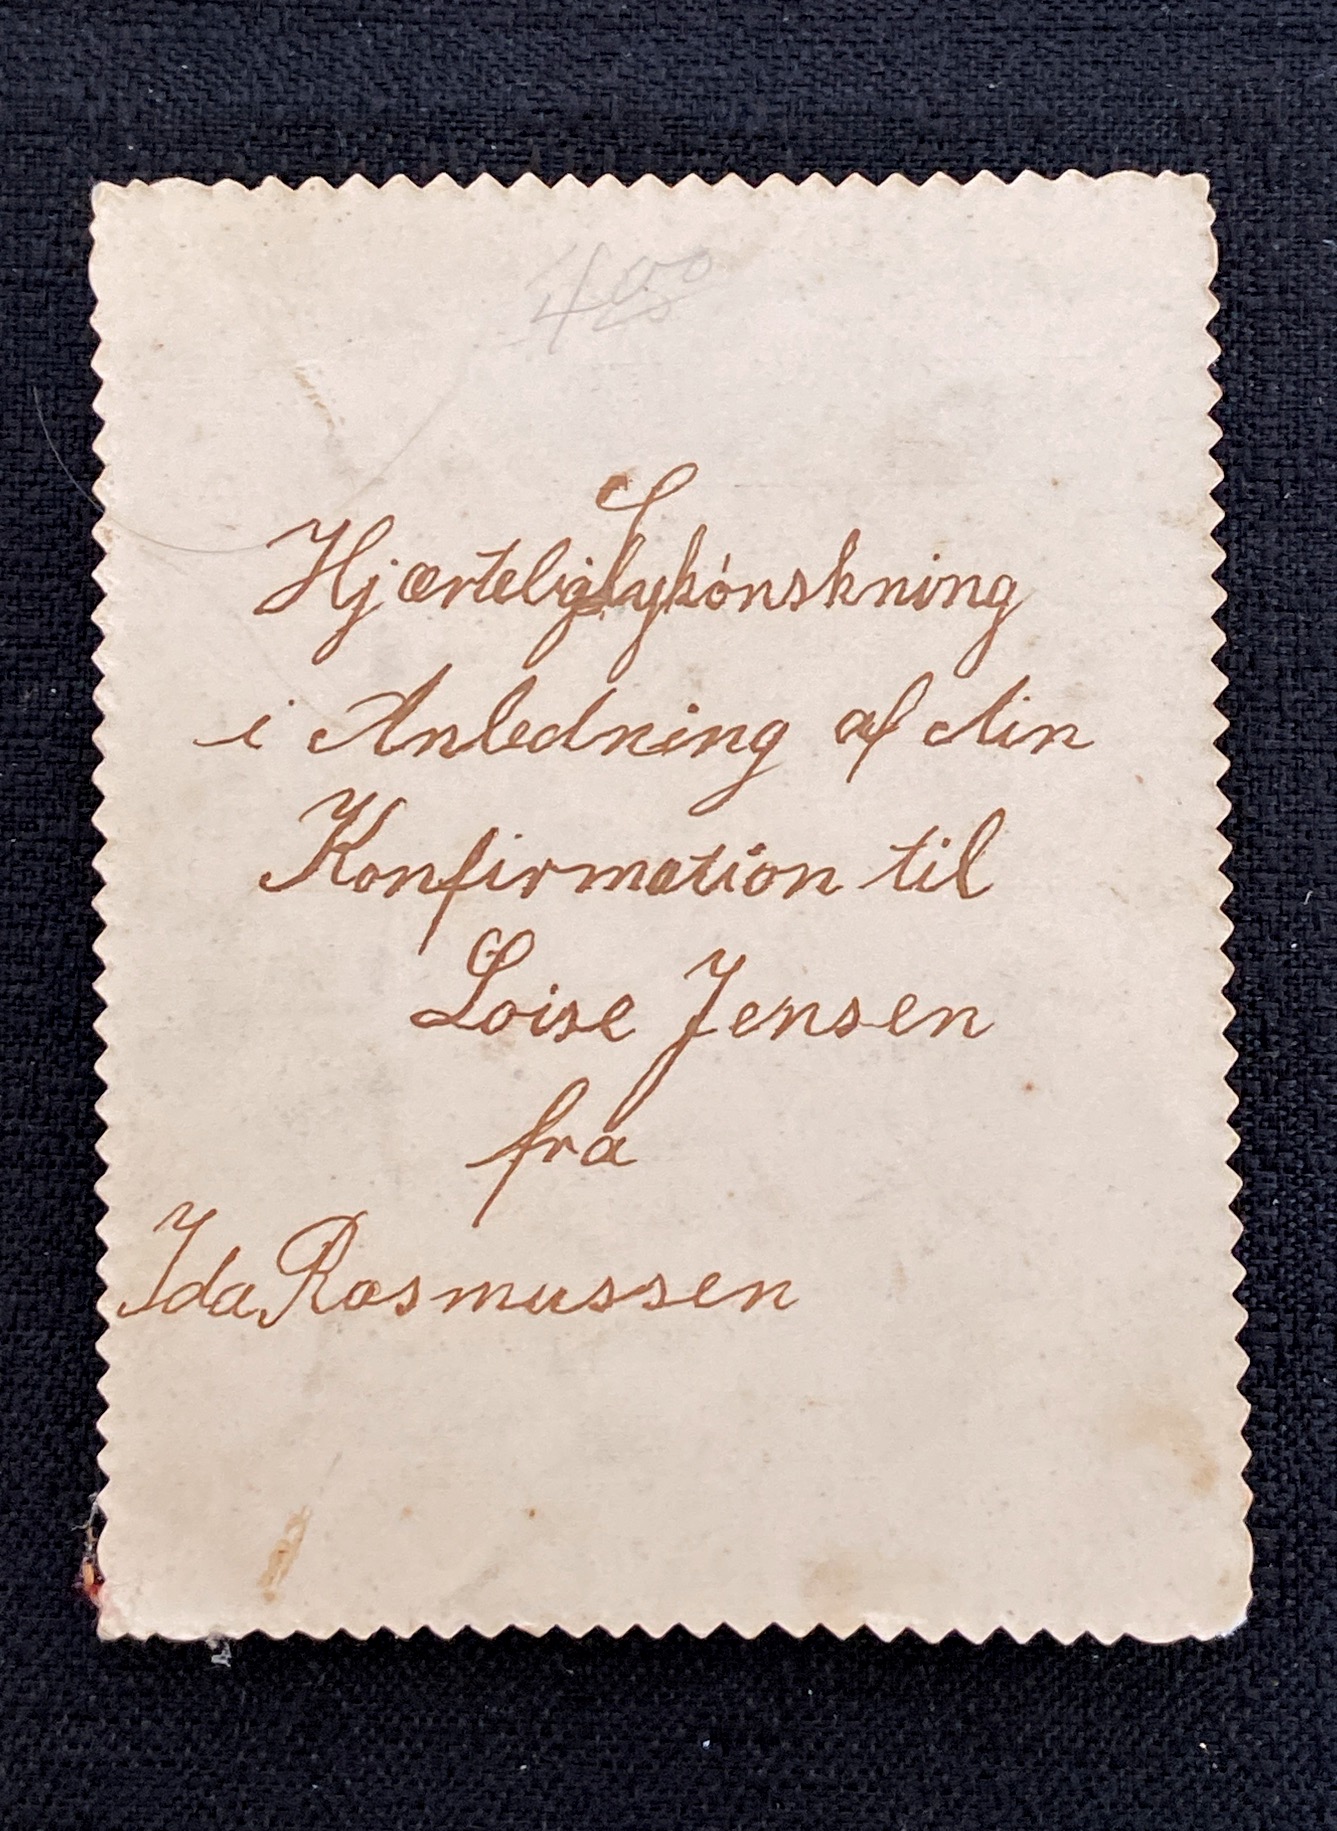 4 00
Hjærtelig Lykónskning
i Anledning af din
Konfirmation til
Loise Jensen
fra
Ida Rasmussen